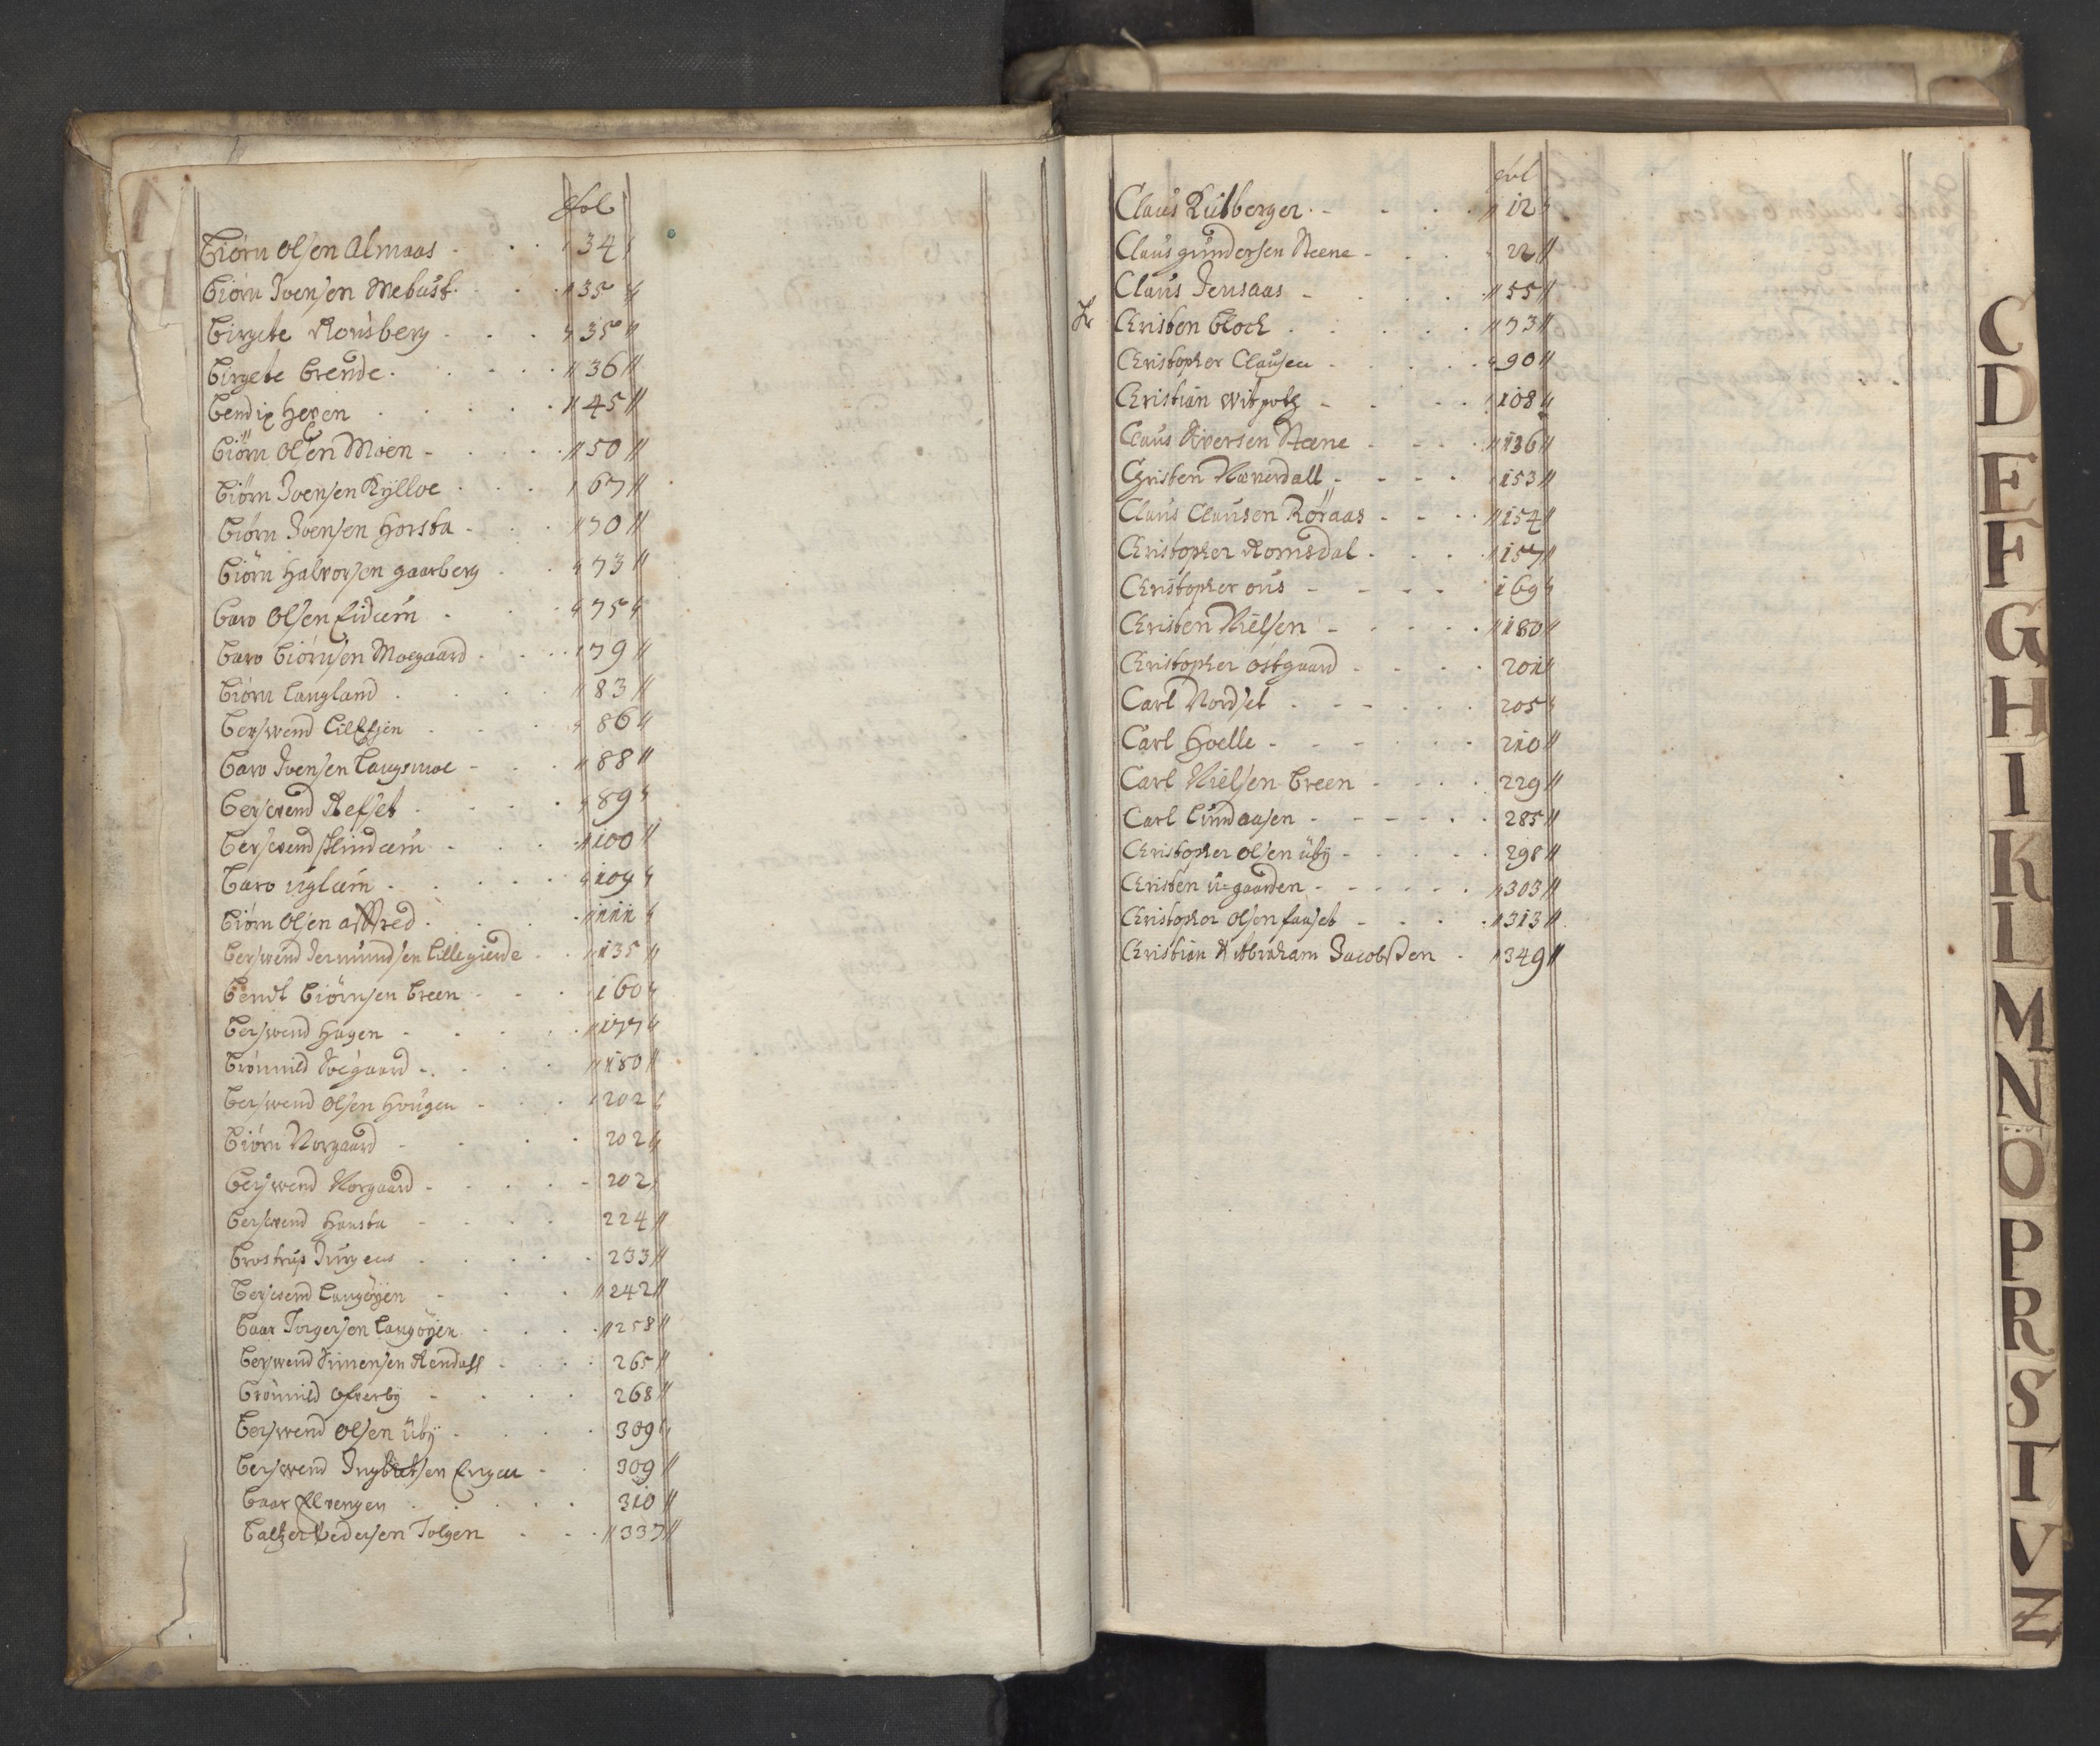 fol
Biörn Olsen Almaas - 34
Biörn Ivensen Mebust 35
Birgete Ronsberg 35
Birgete Brende 36
Bendix Heyen 45
Biörn Olsen Moen 50
Biörn Ivensen Kylloe 67
Biörn Ivensen Horsta 70
Biörn Halvorsen gaarberg 73
Baro Olsen Eidæm 75
Baro Biörnsen Moegaard 79
Biörn Langland 83
Berswend 86
Baro Ivensen Langsmoe 88
Berswend Refset 89
Berswend Slindæm 100
Baro Uglæm 109
Biörn Olsen 111
Berswend Jermundsen Lillegierde 135
Bendt Biörnsen Breen 160
Berswend Hagen 177
Brönnild Soegaard 180
Berswend Olsen Hougen 202
Biörn Norgaard 202
Berswend Norgaard 202
Berswend Hansta 224
Brostrup Jürgens 233
Berswend Langöyen 242
Baar Torgersen Langöyen 258
Berswend Simensen Rendall 265
Brönnild Ofverby 268
Berswend Olsen Üby 309
Berswend Ingbretsen Engen 309
Baar Elvengen 310
Baltzer Pedersen Tolgen 337
fol
Claus Rutberger 12
Claus gundersen Steene 22
Claus Jensaas 55
Christen Block 73
Christopher Clausen 90
Christian 108
Claus Siversen Steene 136
Christen Næverdall 153
Claus Clausen Röraas 154
Christopher Romsdal 157
Christopher ous 169
Christen Nielsen 180
Christopher ostgaard 201
Carl Nordset 205
Carl Hoelle 210
Carl Nielsen Breen 229
Carl Lundaasen 285
Christopher Olsen üby 298
Christen ü=gaarden 303
Christopher Olsen fauset 313
Christian & Abraham Jacobsen 349
C
D
E
F
G
H
I
K
L
M
N
O
P
R
S
T
V
Z